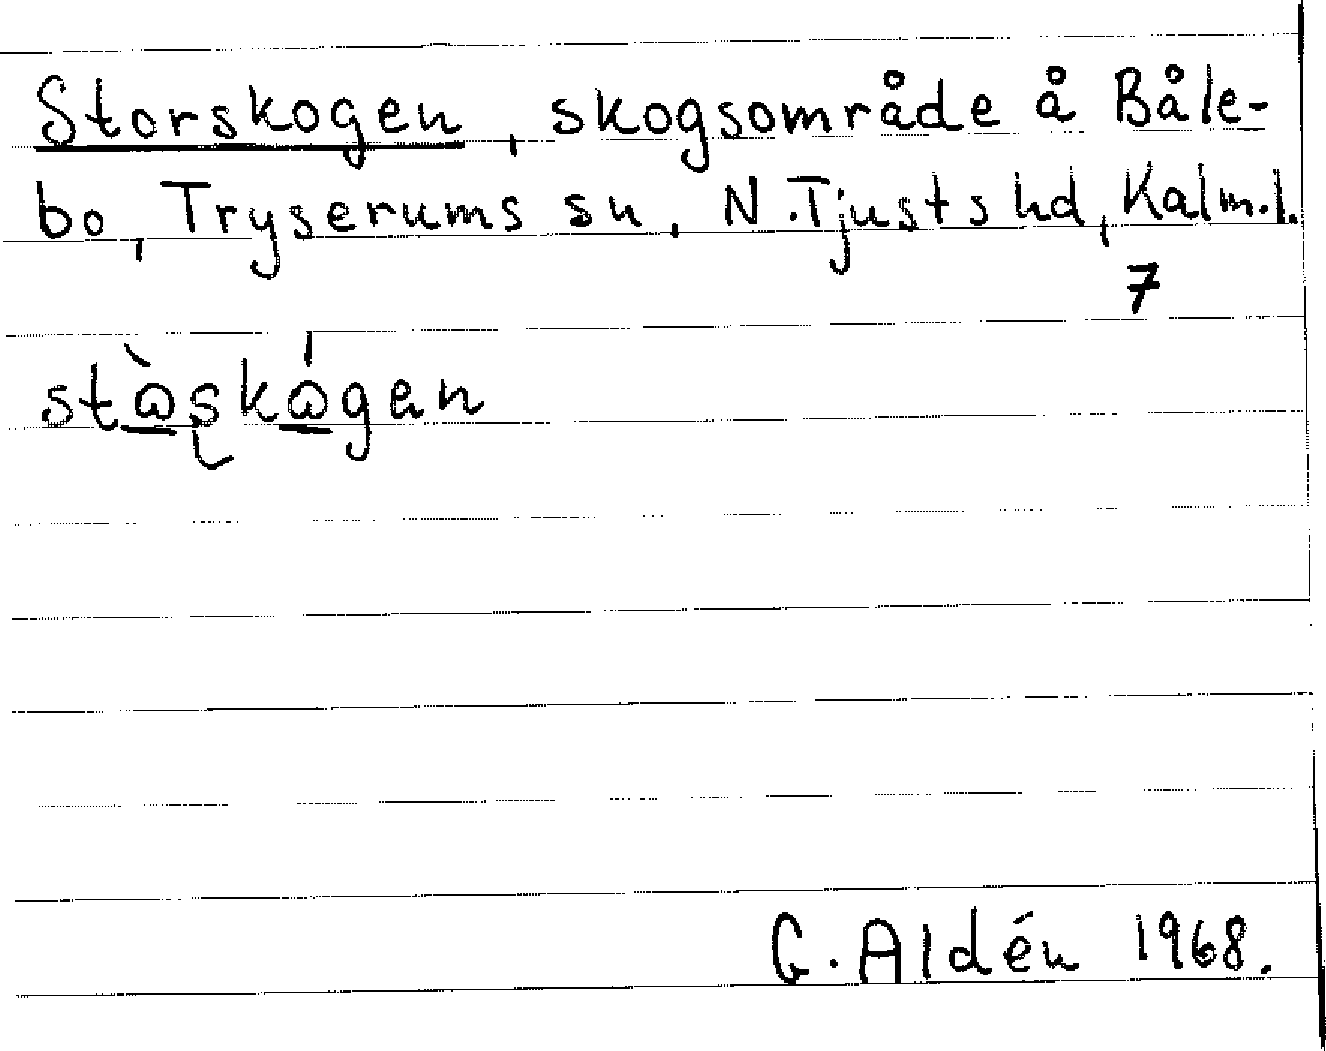 Storskogen, skogsområde å Båle-
bo, Tryserums sn, N. Tjusts hd, Kalm.l.
7
G. Aldén 1968.